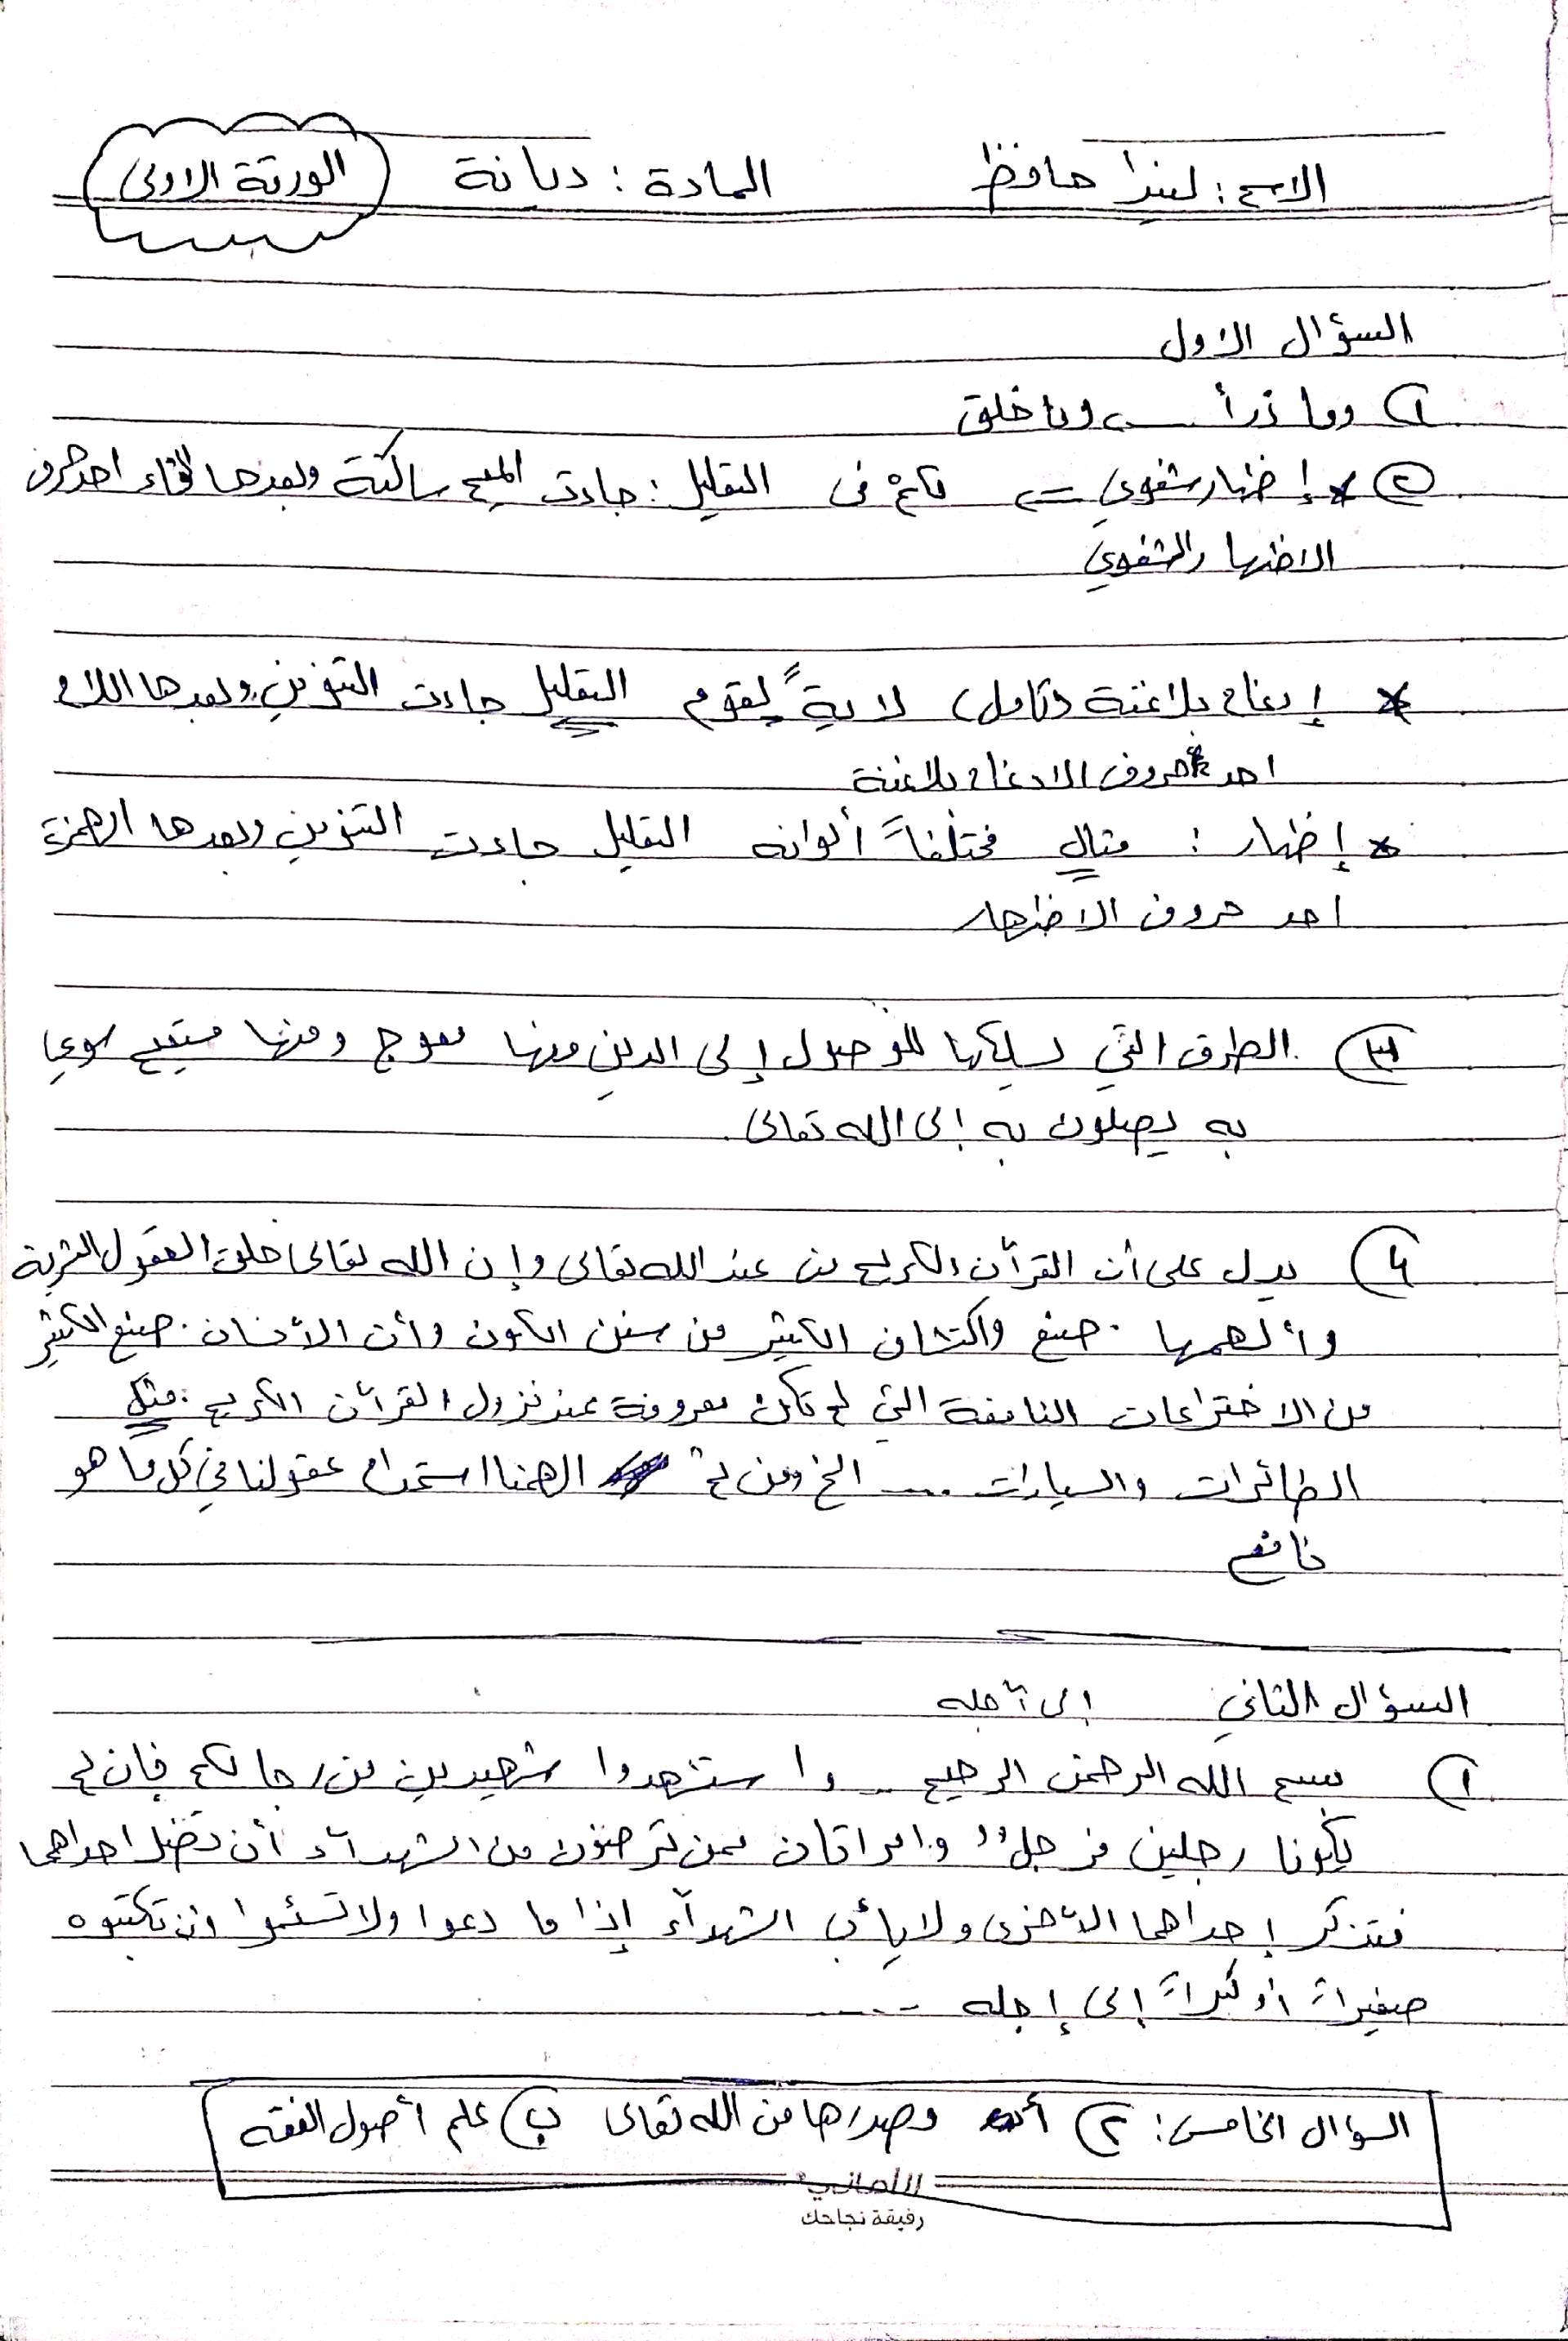 الاسم: ليندا حافظ المادة: ديانة الورقة الاولى
السؤال الاول
١) وما ذرأ ← وما خلق
٢) * إظهار شفوي ← في التعليل: جاءت الميم ساكنة وبعدها الفاء احد حروف
الاظهار الشفوي
* إدغام بلا غنة (كامل) لايةً لقوم التعليل جاءت التنوين وبعدها اللام
احد حروف الادغام بلاغنة
* إظهار: مثال مختلفاً ألوانه التعليل جاءت التنوين وبعدها الهمزة
احد حروف الاظهار
٣) الطرق التي يسلكها للوصول إلى الدين منها معوج ومنها مستقيم سوي
به يصلون به إلى الله تعالى.
٤) يدل على أن القرآن الكريم من عند الله تعالى وإن الله تعالى خلق العقول البشرية
وألهمها صنع واكتشاف الكثير من سنن الكون وأن الأنسان صنع الكثير
من الاختراعات النافعة التي لم تكن معروفة عند نزول القرآن الكريم مثل
الطائرات والسيارات .... الخ ومن ثم الهمنا استخدام عقولنا في كل ما هو
نافع
السؤال الثاني إلى أجله
١) بسم الله الرحمن الرحيم واستشهدوا شهيدين من رجالكم فإن لم
يكونا رجلين فرجل" وامراتان ممن ترضون من الشهدآء أن تضل احداهما
فتذكر إحداهما الأخرى ولا يأب الشهدآء إذا ما دعوا ولا تسئموا ان تكتبوه
صغيراً أو كبيراً إلى إجله ....
السؤال الخامس: ٢) أ مصدرها من الله تعالى ب) علم أصول الفقه
الأماني
رفيقة نجاحك